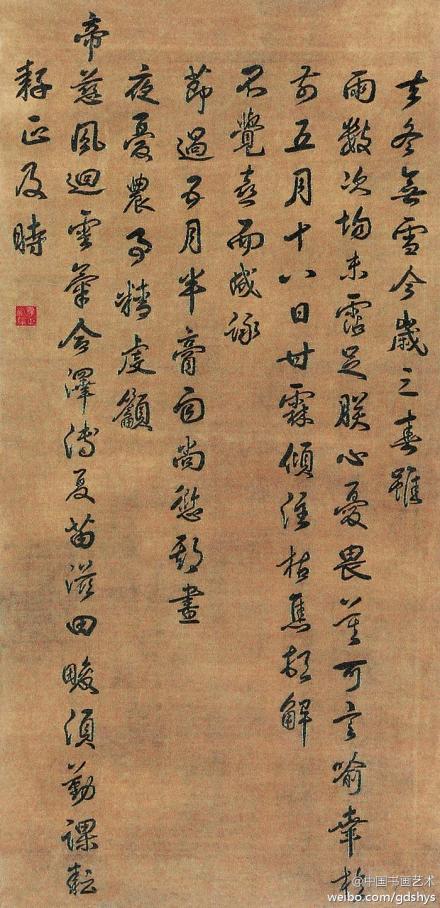 去冬無雪今歲之春雖
雨數次均未霑足朕心憂畏莫可言喻幸於
前五月十八日甘霖傾注枯焦頓解
不覺喜而成詠
節過五月半膏雨尚愆期晝
夜憂農事精虔籲
帝慈風迴雲氣合澤溥夏苗滋田畯須勤課耘
耔正及時
@中国书画艺术
weibo.com/gdshys